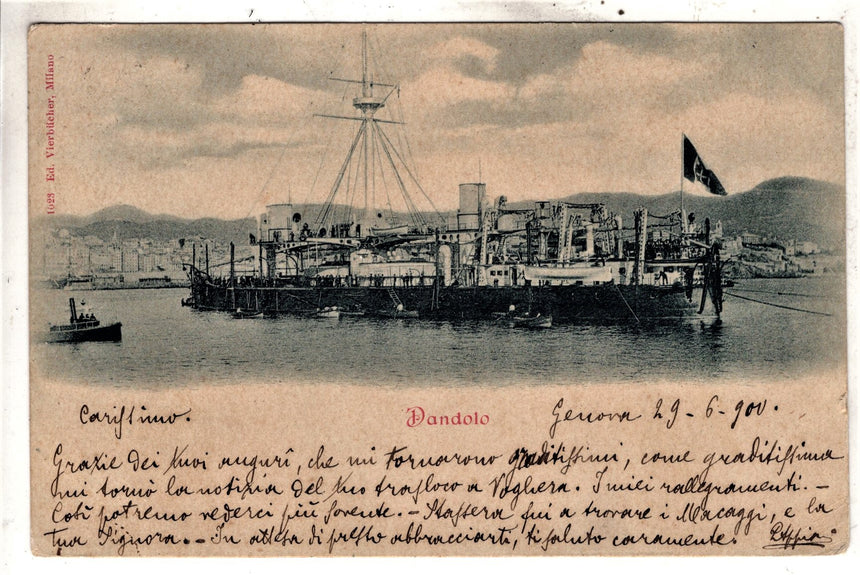 1023 Ed. Vierbücher, Milano
Dandolo
Carissimo.
Genova 29-6-900.
Grazie dei tuoi augurî, che mi tornarono graditissimi, come graditissima
mi tornò la notizia del tuo trasloco a Voghera. I miei rallegramenti. -
Così potremo vederci più sovente. - Stassera fui a trovare i Macaggi, e la
tua Signora. - In attesa di presto abbracciarti, ti saluto caramente.